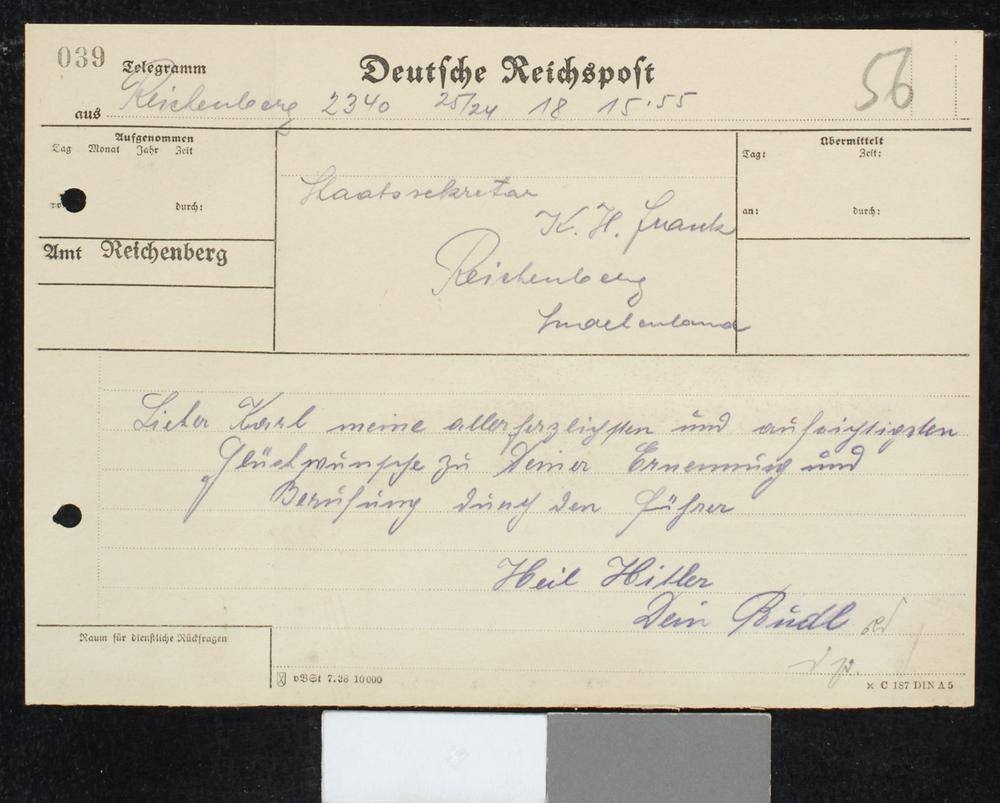 039
Telegramm
Deutsche Reichspost
56
aus Reichenberg 2340 25/24 18 15.55
Aufgenommen
Tag Monat Jahr Zeit
durch:
Amt Reichenberg
Staatssekretär
K. H. Frank
Reichenberg
Sudetenland
Übermittelt
Tag: Zeit:
an: durch:
Lieber Karl meine allerherzlichsten und aufrichtigsten
Glückwünsche zu Deiner Ernennung und
Berufung durch den Führer
Heil Hitler
Dein Rudl
Raum für dienstliche Rückfragen
vBSt 7.38 10000
× C 187 DIN A 5